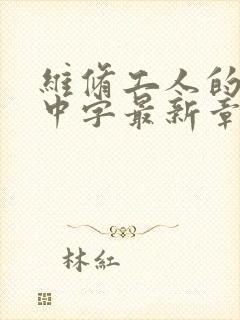 維脩工人的
中字最新章
林紅